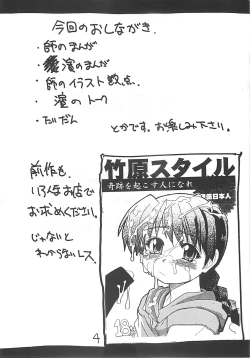 今回のおしながき.
・師のまんが
・澪のまんが
・師のイラスト数点.
・澪のトーク
・だいだん
とかです。お楽しみ下さい。
前作も、
いろんなお店で
お求めください。
じゃないと
わからないしス.
竹原スタイル
奇跡を起こす人になれ
日本人
18
4